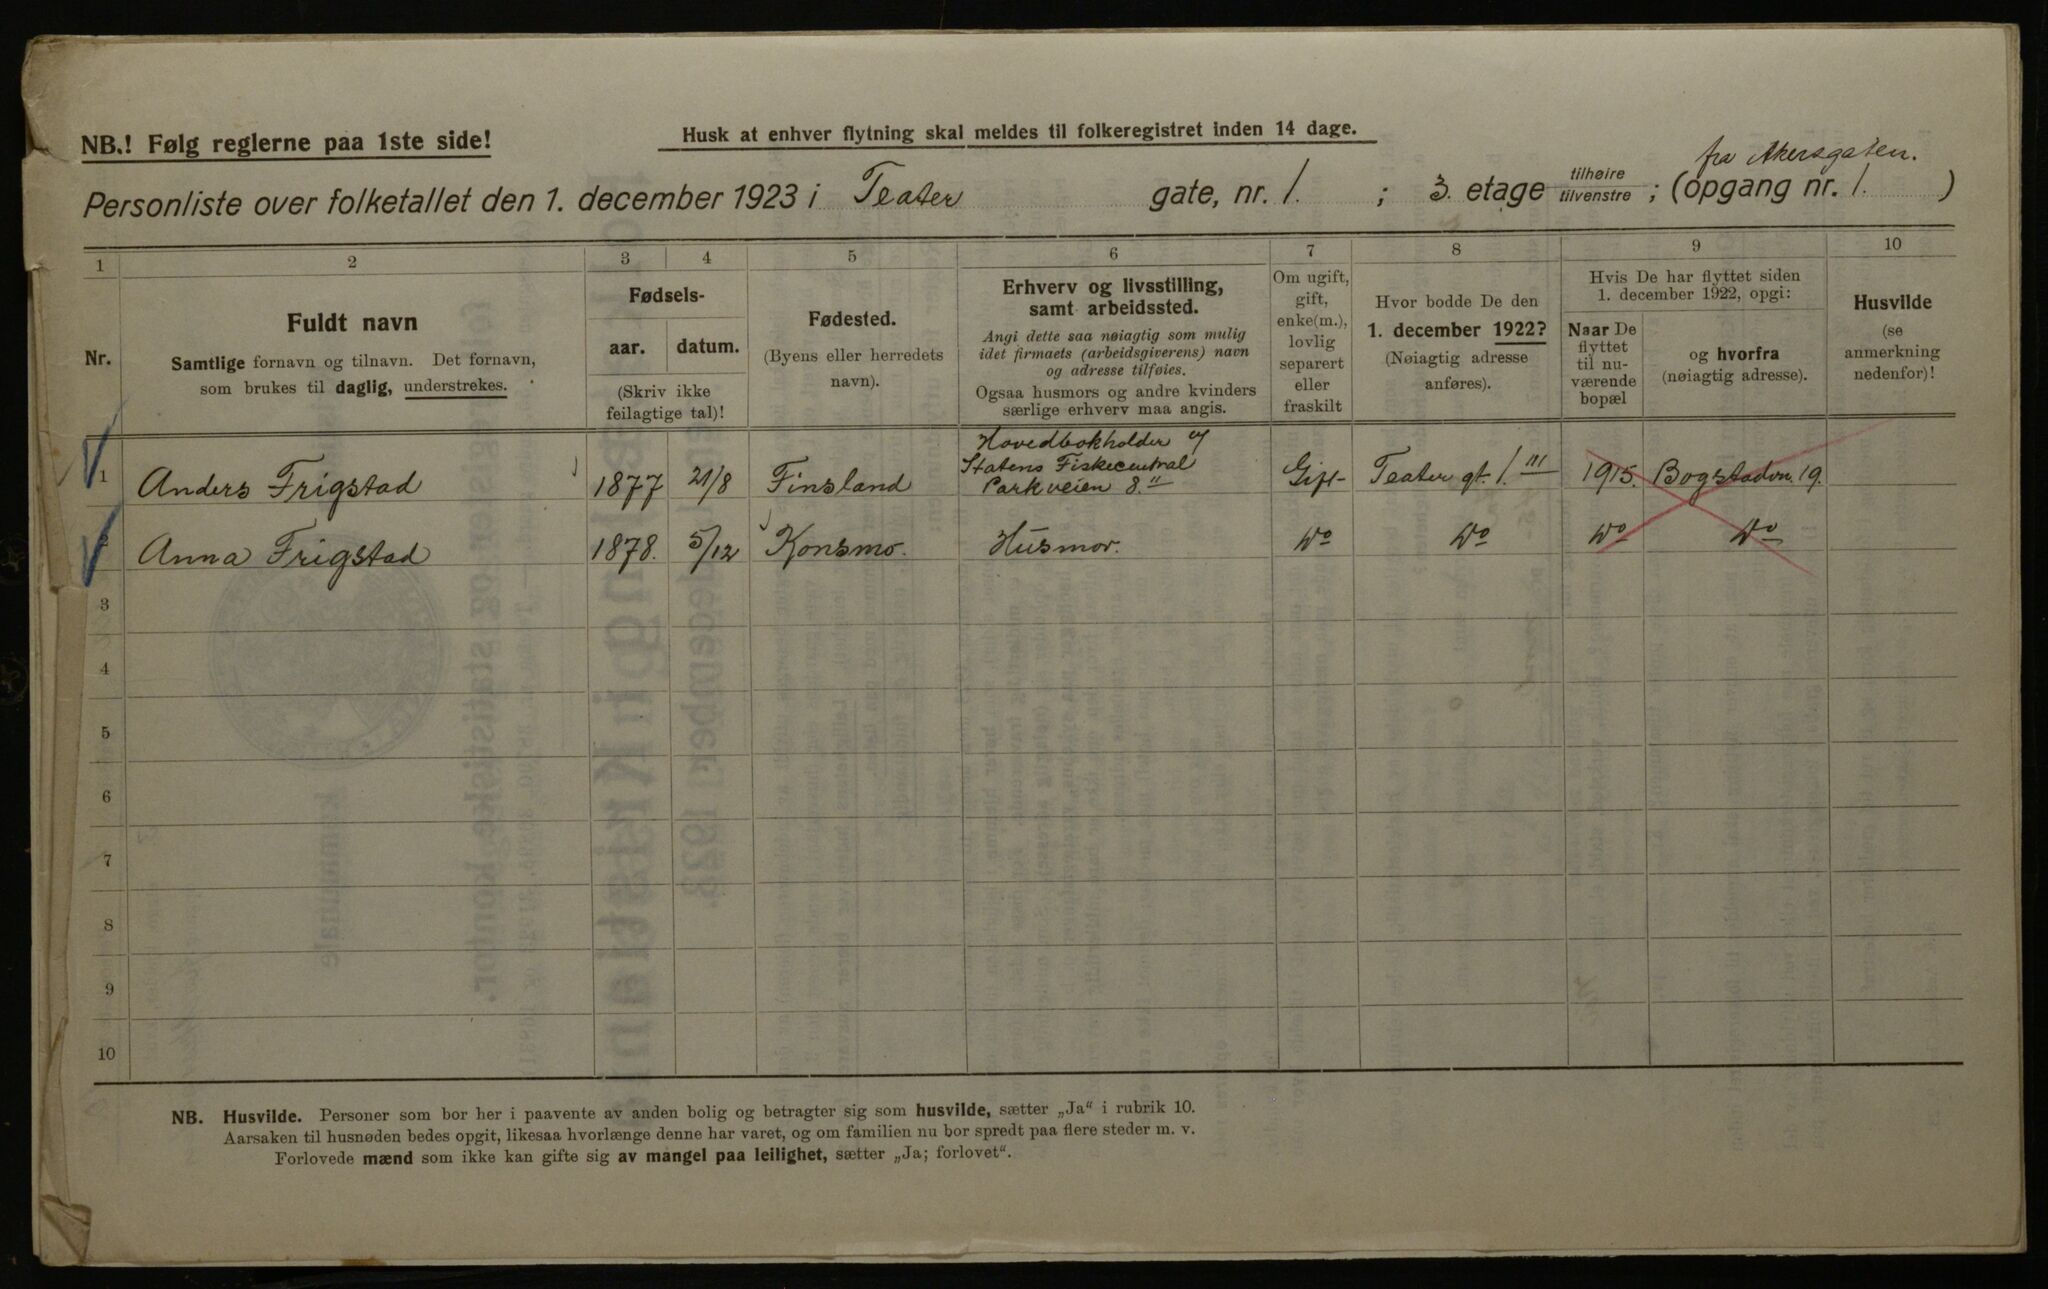 NB.! Følg reglerne paa 1ste side!
Husk at enhver flytning skal meldes til folkeregistret inden 14 dage.
fra Akersgaten.
Personliste over folketallet den 1. december 1923 i Teater gate, nr. 1. ; 3. etage tilhøire tilvenstre ; (opgang nr. 1. )
1 2 3 4 5 6 7 8 9 10
Nr.
Fuldt navn
Samtlige fornavn og tilnavn. Det fornavn,
som brukes til daglig, understrekes.
Fødsels-
aar. datum.
(Skriv ikke
feilagtige tal)!
Fødested.
(Byens eller herredets
navn).
Erhverv og livsstilling,
samt arbeidssted.
Angi dette saa nøiagtig som mulig
idet firmaets (arbeidsgiverens) navn
og adresse tilføies.
Ogsaa husmors og andre kvinders
særlige erhverv maa angis.
Om ugift,
gift,
enke(m.),
lovlig
separert
eller
fraskilt
Hvor bodde De den
1. december 1922?
(Nøiagtig adresse
anføres).
Hvis De har flyttet siden
1. december 1922, opgi:
Naar De
flyttet
til nu-
værende
bopæl
og hvorfra
(nøiagtig adresse).
Husvilde
(se
anmerkning
nedenfor)!
Hovedbokholder
Statens Fiskecentral
Parkveien 8."
1 Anders Frigstad 1877 21/8 Finsland Gift Teater gt. 1. III 1915. Bogstadvn. 19.
2 Anna Frigstad 1878. 5/12 Konsmo. Husmor. Do Do Do Do
3
4
5
6
7
8
9
10
NB. Husvilde. Personer som bor her i paavente av anden bolig og betragter sig som husvilde, sætter „Ja“ i rubrik 10.
Aarsaken til husnøden bedes opgit, likesaa hvorlænge denne har varet, og om familien nu bor spredt paa flere steder m. v.
Forlovede mænd som ikke kan gifte sig av mangel paa leilighet, sætter „Ja; forlovet“.